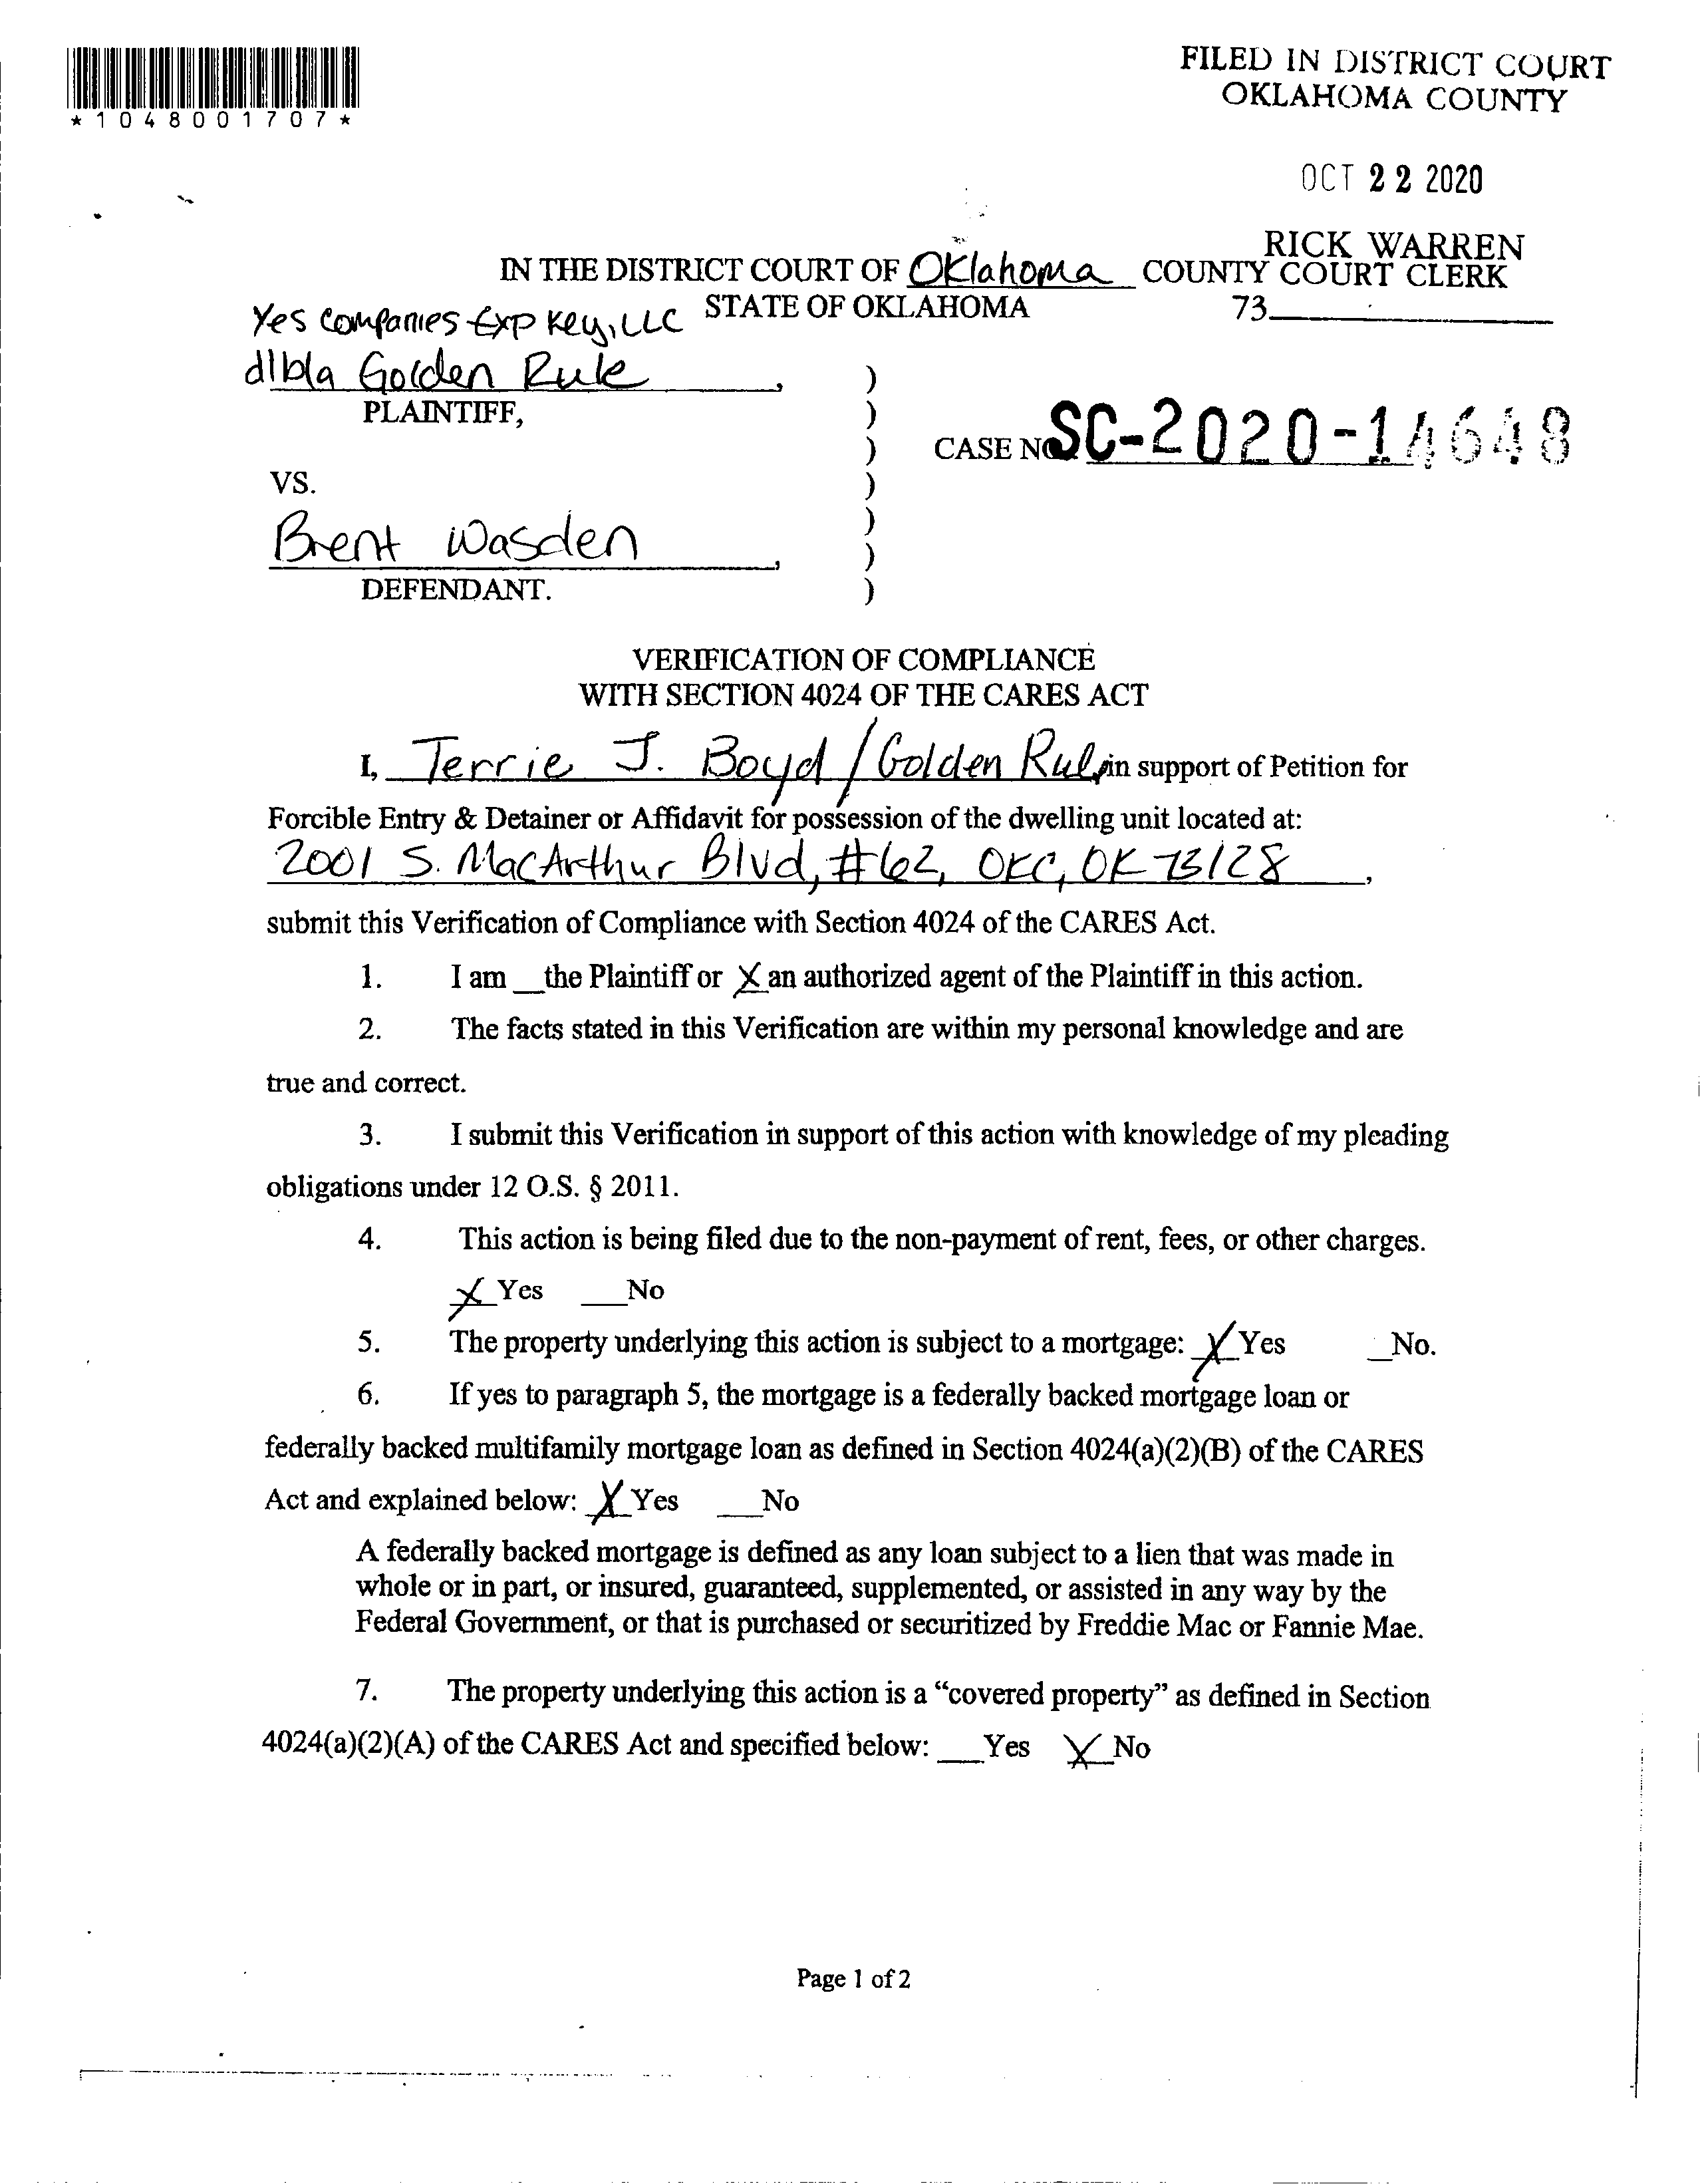 *1048001707*
FILED IN DISTRICT COURT
OKLAHOMA COUNTY
OCT 22 2020
RICK WARREN
IN THE DISTRICT COURT OF Oklahoma COUNTY COURT CLERK
STATE OF OKLAHOMA 73
Yes Companies Exp Key, LLC
d/b/a Golden Rule ,
PLAINTIFF,
CASE NO. SC-2020-14648
VS.
Brent Wasden ,
DEFENDANT.
)
)
)
)
)
)
)
VERIFICATION OF COMPLIANCE
WITH SECTION 4024 OF THE CARES ACT
I, Terrie J. Boyd / Golden Rule, in support of Petition for
Forcible Entry & Detainer or Affidavit for possession of the dwelling unit located at:
2001 S. MacArthur Blvd, #62, OKC, OK 73128 ,
submit this Verification of Compliance with Section 4024 of the CARES Act.
1. I am __the Plaintiff or X an authorized agent of the Plaintiff in this action.
2. The facts stated in this Verification are within my personal knowledge and are
true and correct.
3. I submit this Verification in support of this action with knowledge of my pleading
obligations under 12 O.S. § 2011.
4. This action is being filed due to the non-payment of rent, fees, or other charges.
X Yes ___No
5. The property underlying this action is subject to a mortgage: X Yes __No.
6. If yes to paragraph 5, the mortgage is a federally backed mortgage loan or
federally backed multifamily mortgage loan as defined in Section 4024(a)(2)(B) of the CARES
Act and explained below: X Yes ___No
A federally backed mortgage is defined as any loan subject to a lien that was made in
whole or in part, or insured, guaranteed, supplemented, or assisted in any way by the
Federal Government, or that is purchased or securitized by Freddie Mac or Fannie Mae.
7. The property underlying this action is a “covered property” as defined in Section
4024(a)(2)(A) of the CARES Act and specified below: ___Yes X No
Page 1 of 2